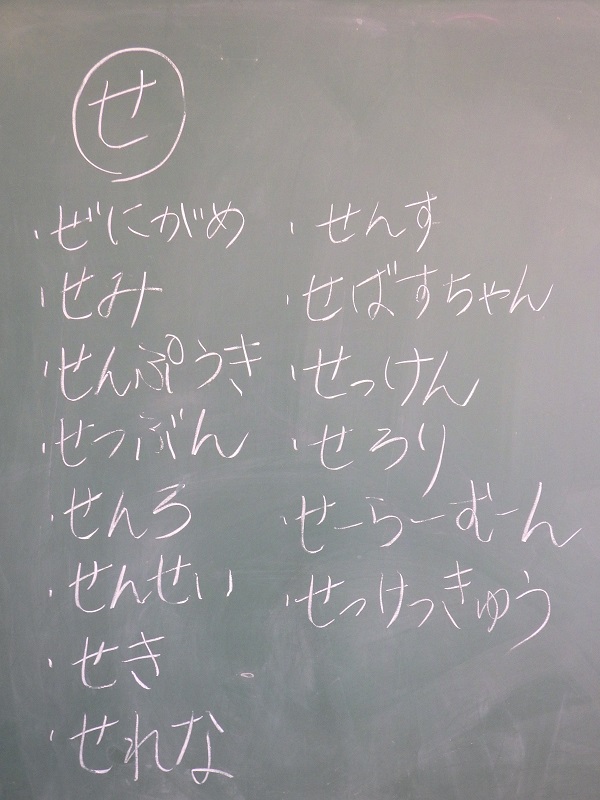 せ
・ぜにがめ
・せみ
・せんぷうき
・せつぶん
・せんろ
・せんせい
・せき
・せれな
・せんす
・せばすちゃん
・せっけん
・せろり
・せーらーむーん
・せっけっきゅう